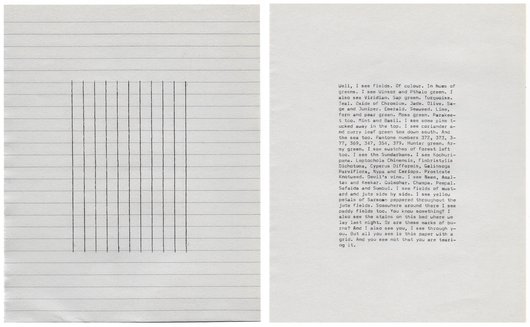 Well, I see fields. Of colour. In hues of
greens. I see Winsor and Pthalo green. I
also see Viridian. Sap green. Turquoise.
Teal. Oxide of Chromium. Jade. Olive. Sa-
ge and Juniper. Emerald. Seaweed. Lime,
fern and pear green. Moss green. Parakee-
t too. Mint and Basil. I see some pine t-
ucked away in the top. I see coriander a-
nd curry leaf green too down south. And
the sea too. Pantone numbers 372, 373, 3-
77, 369, 347, 354, 379. Hunter green. Ar-
my green. I see swatches of forest left
too. I see the Sundarbans. I see kochuri-
pana. Leptochola Chinensis, Fimbristylis
Dichotoma, Cyperus Difformis, Galinsoga
Parviflora, Nypa and Ceriops. Prostrate
Knotweed. Devil's vine. I see Neem, Amal-
tas and Keekar. Gulmohar. Champa. Peepal.
Sefaida and Sumbul. I see fields of must-
ard and jute side by side. I see yellow
petals of Sarson peppered throughout the
jute fields. Somewhere around there I see
paddy fields too. You know something? I
also see the stains on this bed where we
lay last night. Or are these marks of bu-
rns? And I also see you, I see through y-
ou. But all you see is this paper with a
grid. And you see not that you are teari-
ng it.